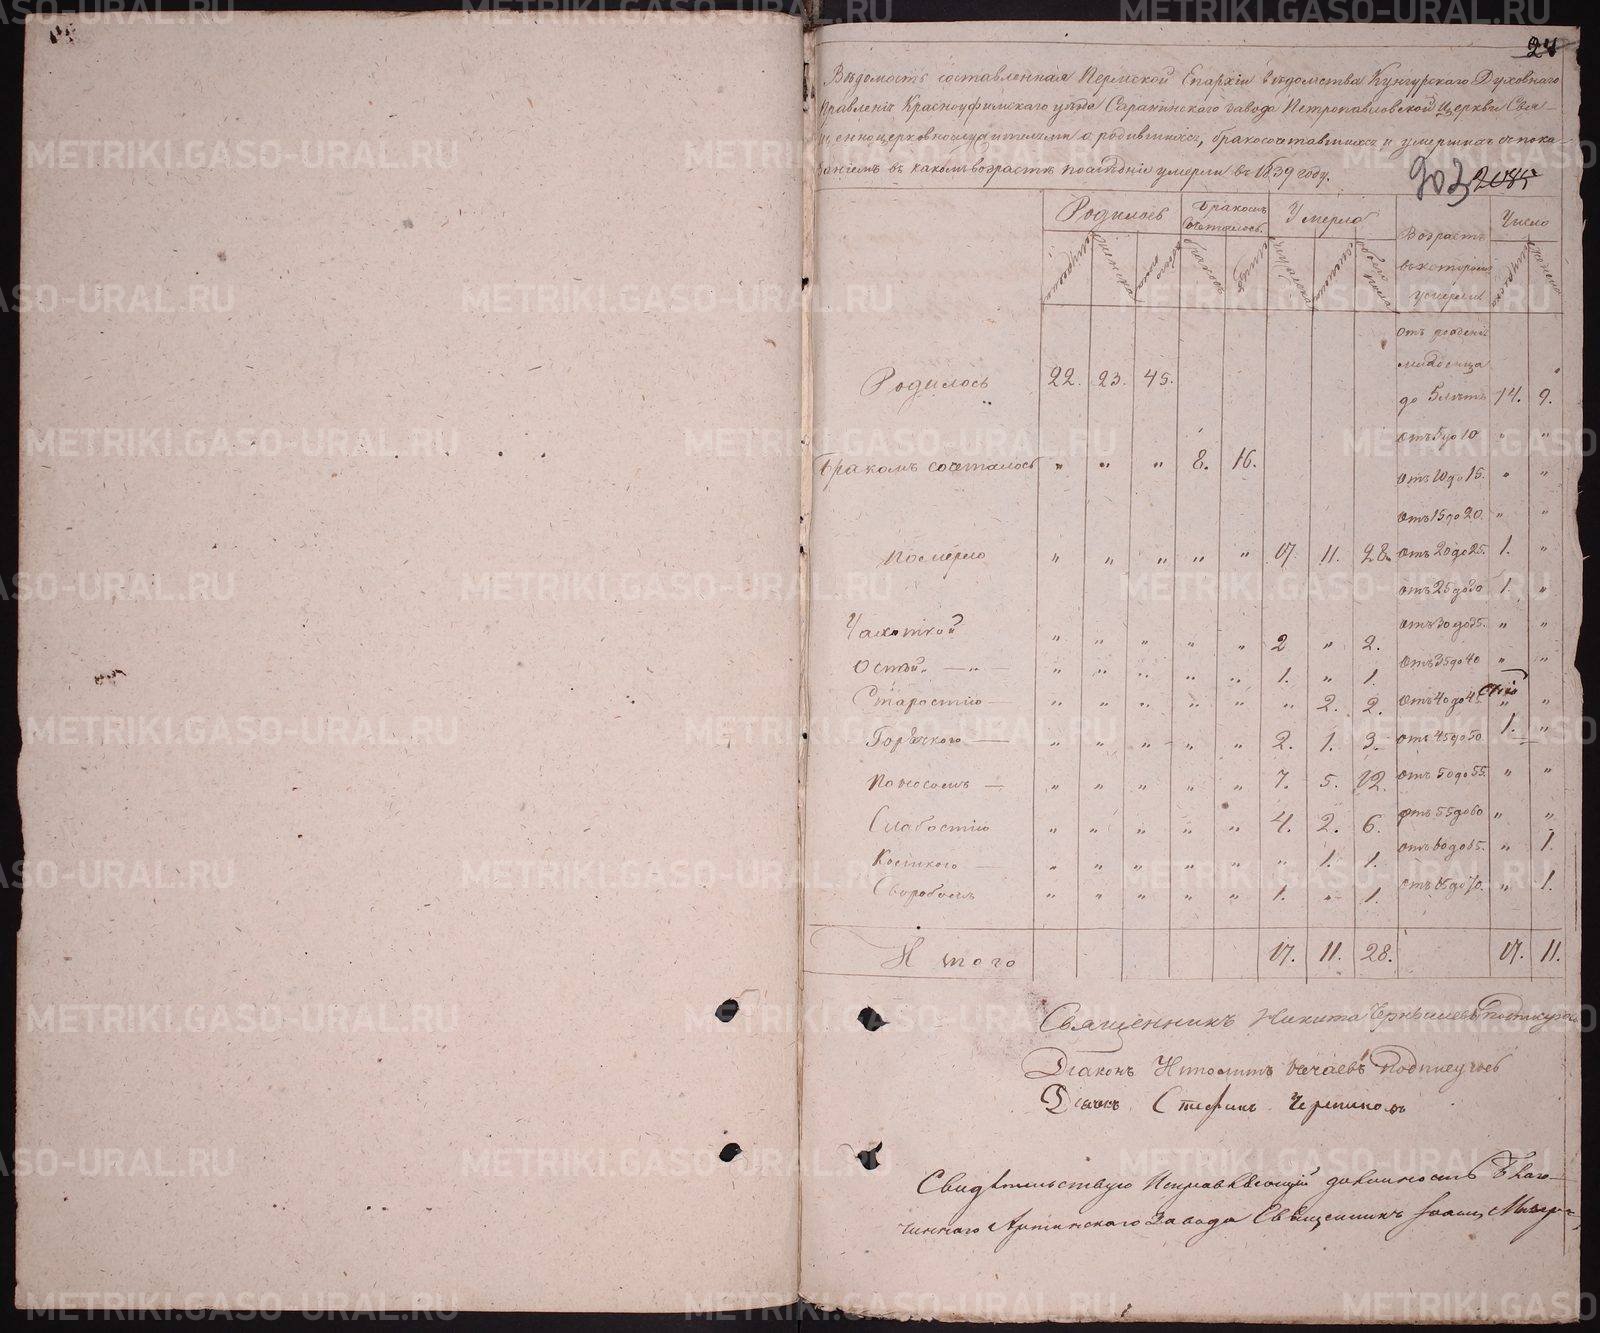 24
Вѣдомость составленная Пермской Епархіи вѣдомства Кунгурскаго Духовнаго
Правленія Красноуфимскаго уѣзда Саранинскаго завода Петропавловской Церкви Свя-
щенноцерковнослужителями о родившихся, бракосочетавшихся и умершихъ съ пока-
заніемъ въ какомъ возрастѣ послѣдніе умерли въ 1839 году.
903 2085
Родилось Бракомъ сочеталось Умерло Возрастъ въ которомъ умерли Число
мужеска женска обоего пола браковъ мужеска женска обоего пола мужеска женска
Родилось 22. 23. 45. отъ рожденія младенца до 5 лѣтъ 14. 9.
отъ 5 до 10 " "
Бракомъ сочеталось " " " 8. 16. отъ 10 до 15. " "
отъ 15 до 20. " "
Померло " " " " " 17. 11. 28. отъ 20 до 25. 1. "
отъ 25 до 30 1. "
Чахоткой " " " " " 2 " 2. отъ 30 до 35. " "
Оспой " " " " " 1. " 1. отъ 35 до 40 " "
Старостію " " " " " " 2. 2. отъ 40 до 45 " "
Горячкою " " " " " 2. 1. 3. отъ 45 до 50 1. "
Поносомъ " " " " " 7. 5. 12. отъ 50 до 55. " "
Слабостію " " " " " 4. 2. 6. отъ 55 до 60 " "
" " " " " " 1. 1. отъ 60 до 65. " 1.
" " " " " 1. " 1. отъ 65 до 70. " 1.
Итого 17. 11. 28. 17. 11.
Священникъ Никита подписуюсь
Діаконъ Ипполитъ Нечаевъ подписуюсь
Дьячекъ Стефанъ
Свидѣтельствую Исправляющій должность Благо-
чиннаго Артинскаго Завода Священникъ Іоаннъ
METRIKI.GASO-URAL.RU